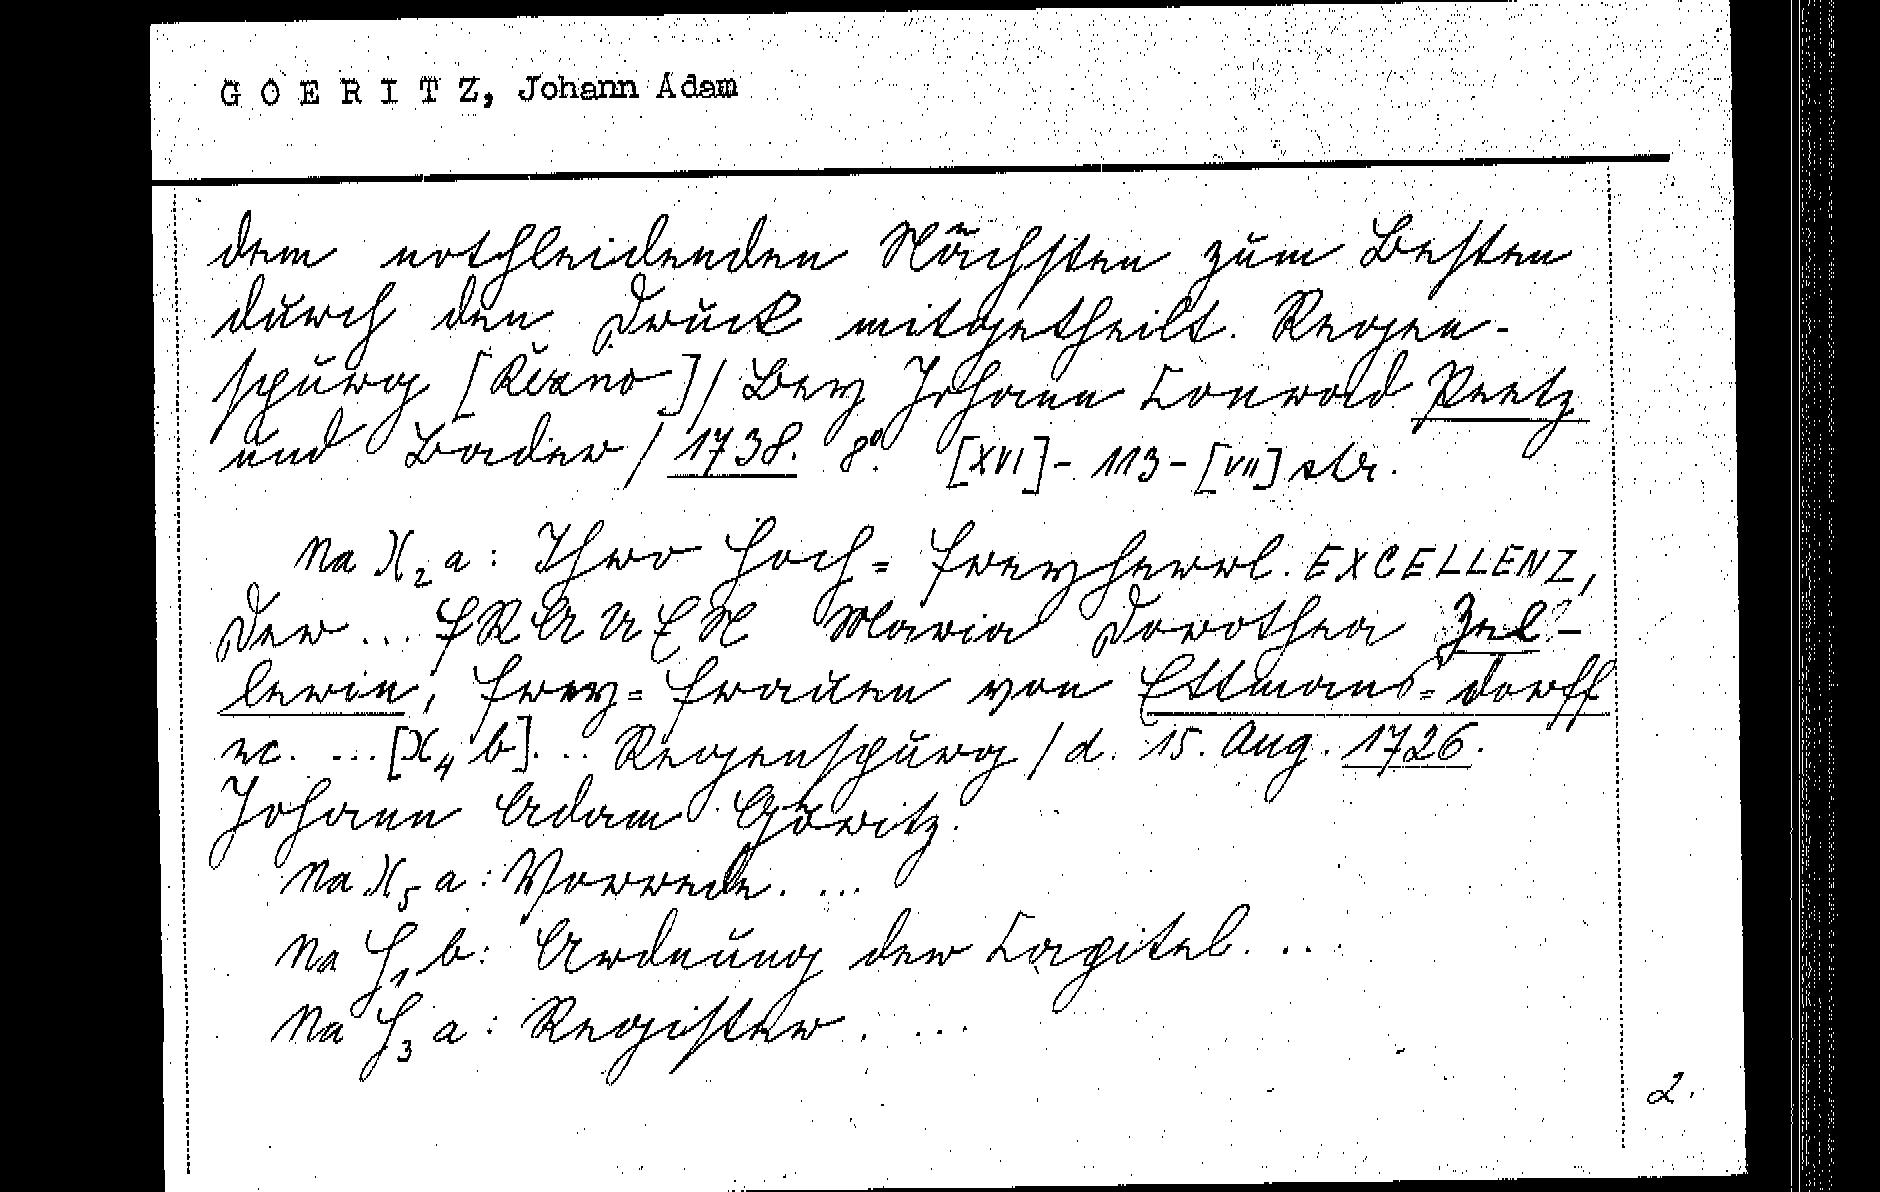 G O E R I T Z, Johann Adam
dem nothleidenden Nächsten zum Besten
durch den Druck mitgetheilt. Regen-
spurg [Řezno] / Bey Johann Conrad Peetz
und Bader / 1738. 8°. [XVI] - 113 - [VII] str.
Na )(2 a: Ihro Hoch= Freyherrl. EXCELLENZ,
Der ... FRAUEN Maria Dorothea Zel-
lerin, Frey=Frauen von Ettmans=dorff
ꝛc. ... [)(4 b]... Regenspurg / d. 15. Aug. 1726.
Johann Adam Göritz.
Na )(5 a: Vorrede. ...
Na H1 b: Ordnung der Capitel. ...
Na H3 a: Register. ...
2.